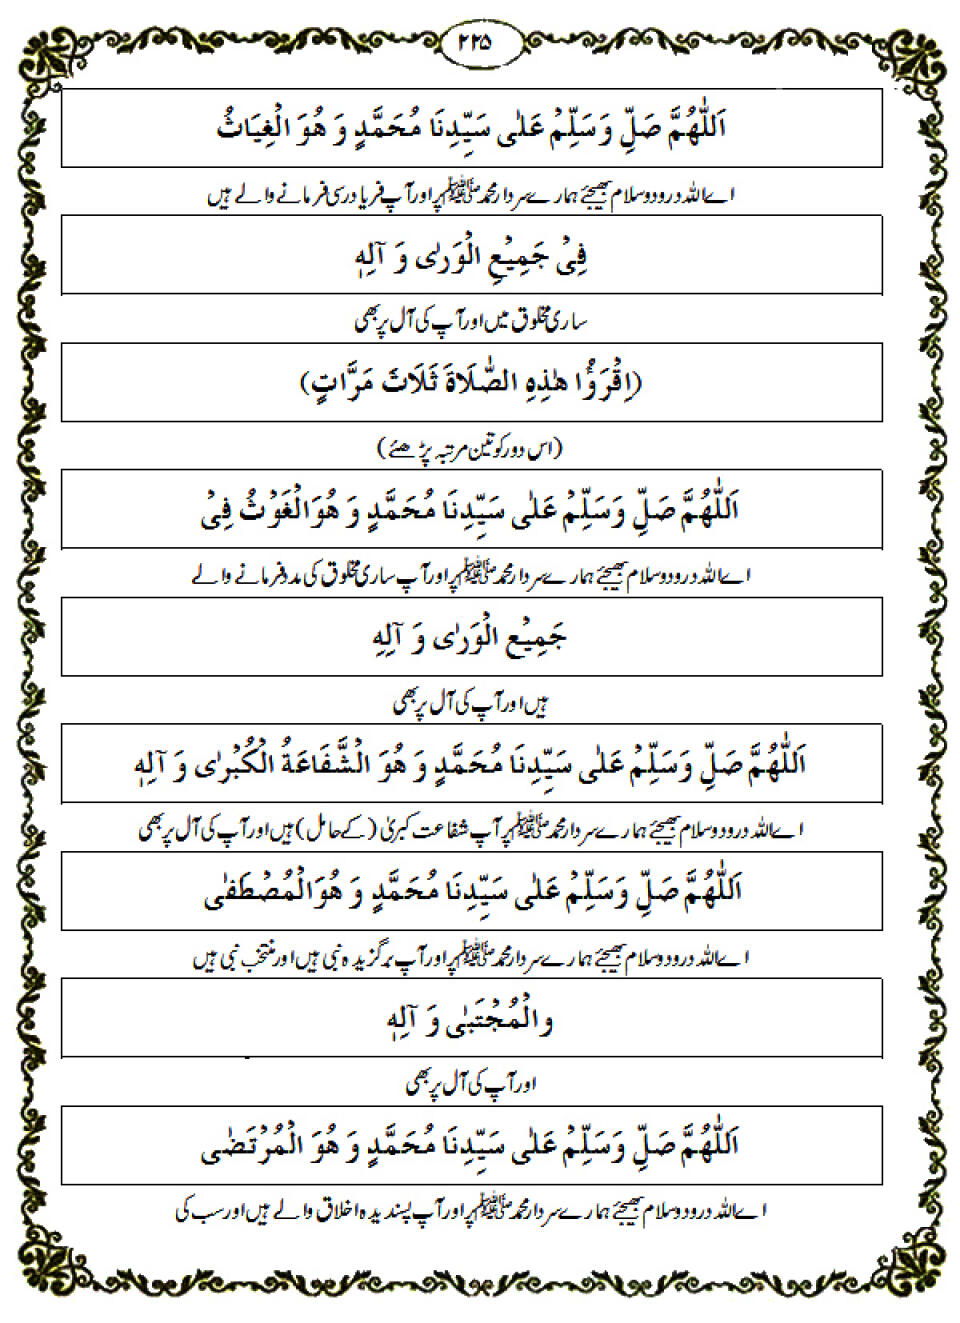 ۲۲۵
اَللّٰهُمَّ صَلِّ وَسَلِّمْ عَلٰى سَيِّدِنَا مُحَمَّدٍ وَ هُوَ الْغِيَاثُ
اے اللہ درود و سلام بھیجئے ہمارے سردار محمد ﷺ پر اور آپ فریاد رسی فرمانے والے ہیں
فِىْ جَمِيْعِ الْوَرٰى وَ آلِهٖ
ساری مخلوق میں اور آپ کی آل پر بھی
(اِقْرَؤُا هٰذِهِ الصَّلَاةَ ثَلَاثَ مَرَّاتٍ)
(اس دور کو تین مرتبہ پڑھئے)
اَللّٰهُمَّ صَلِّ وَسَلِّمْ عَلٰى سَيِّدِنَا مُحَمَّدٍ وَ هُوَالْغَوْثُ فِىْ
اے اللہ درود و سلام بھیجئے ہمارے سردار محمد ﷺ پر اور آپ ساری مخلوق کی مدد فرمانے والے
جَمِيْعِ الْوَرٰى وَ آلِهِ
ہیں اور آپ کی آل پر بھی
اَللّٰهُمَّ صَلِّ وَسَلِّمْ عَلٰى سَيِّدِنَا مُحَمَّدٍ وَ هُوَ الْشَّفَاعَةُ الْكُبْرٰى وَ آلِهٖ
اے اللہ درود و سلام بھیجئے ہمارے سردار محمد ﷺ پر آپ شفاعت کبریٰ (کے حامل) ہیں اور آپ کی آل پر بھی
اَللّٰهُمَّ صَلِّ وَسَلِّمْ عَلٰى سَيِّدِنَا مُحَمَّدٍ وَ هُوَالْمُصْطَفٰى
اے اللہ درود و سلام بھیجئے ہمارے سردار محمد ﷺ پر اور آپ برگزیدہ نبی ہیں اور منتخب نبی ہیں
والْمُجْتَبٰى وَ آلِهٖ
اور آپ کی آل پر بھی
اَللّٰهُمَّ صَلِّ وَسَلِّمْ عَلٰى سَيِّدِنَا مُحَمَّدٍ وَ هُوَ الْمُرْتَضٰى
اے اللہ درود و سلام بھیجئے ہمارے سردار محمد ﷺ پر اور آپ پسندیدہ اخلاق والے ہیں اور سب کی